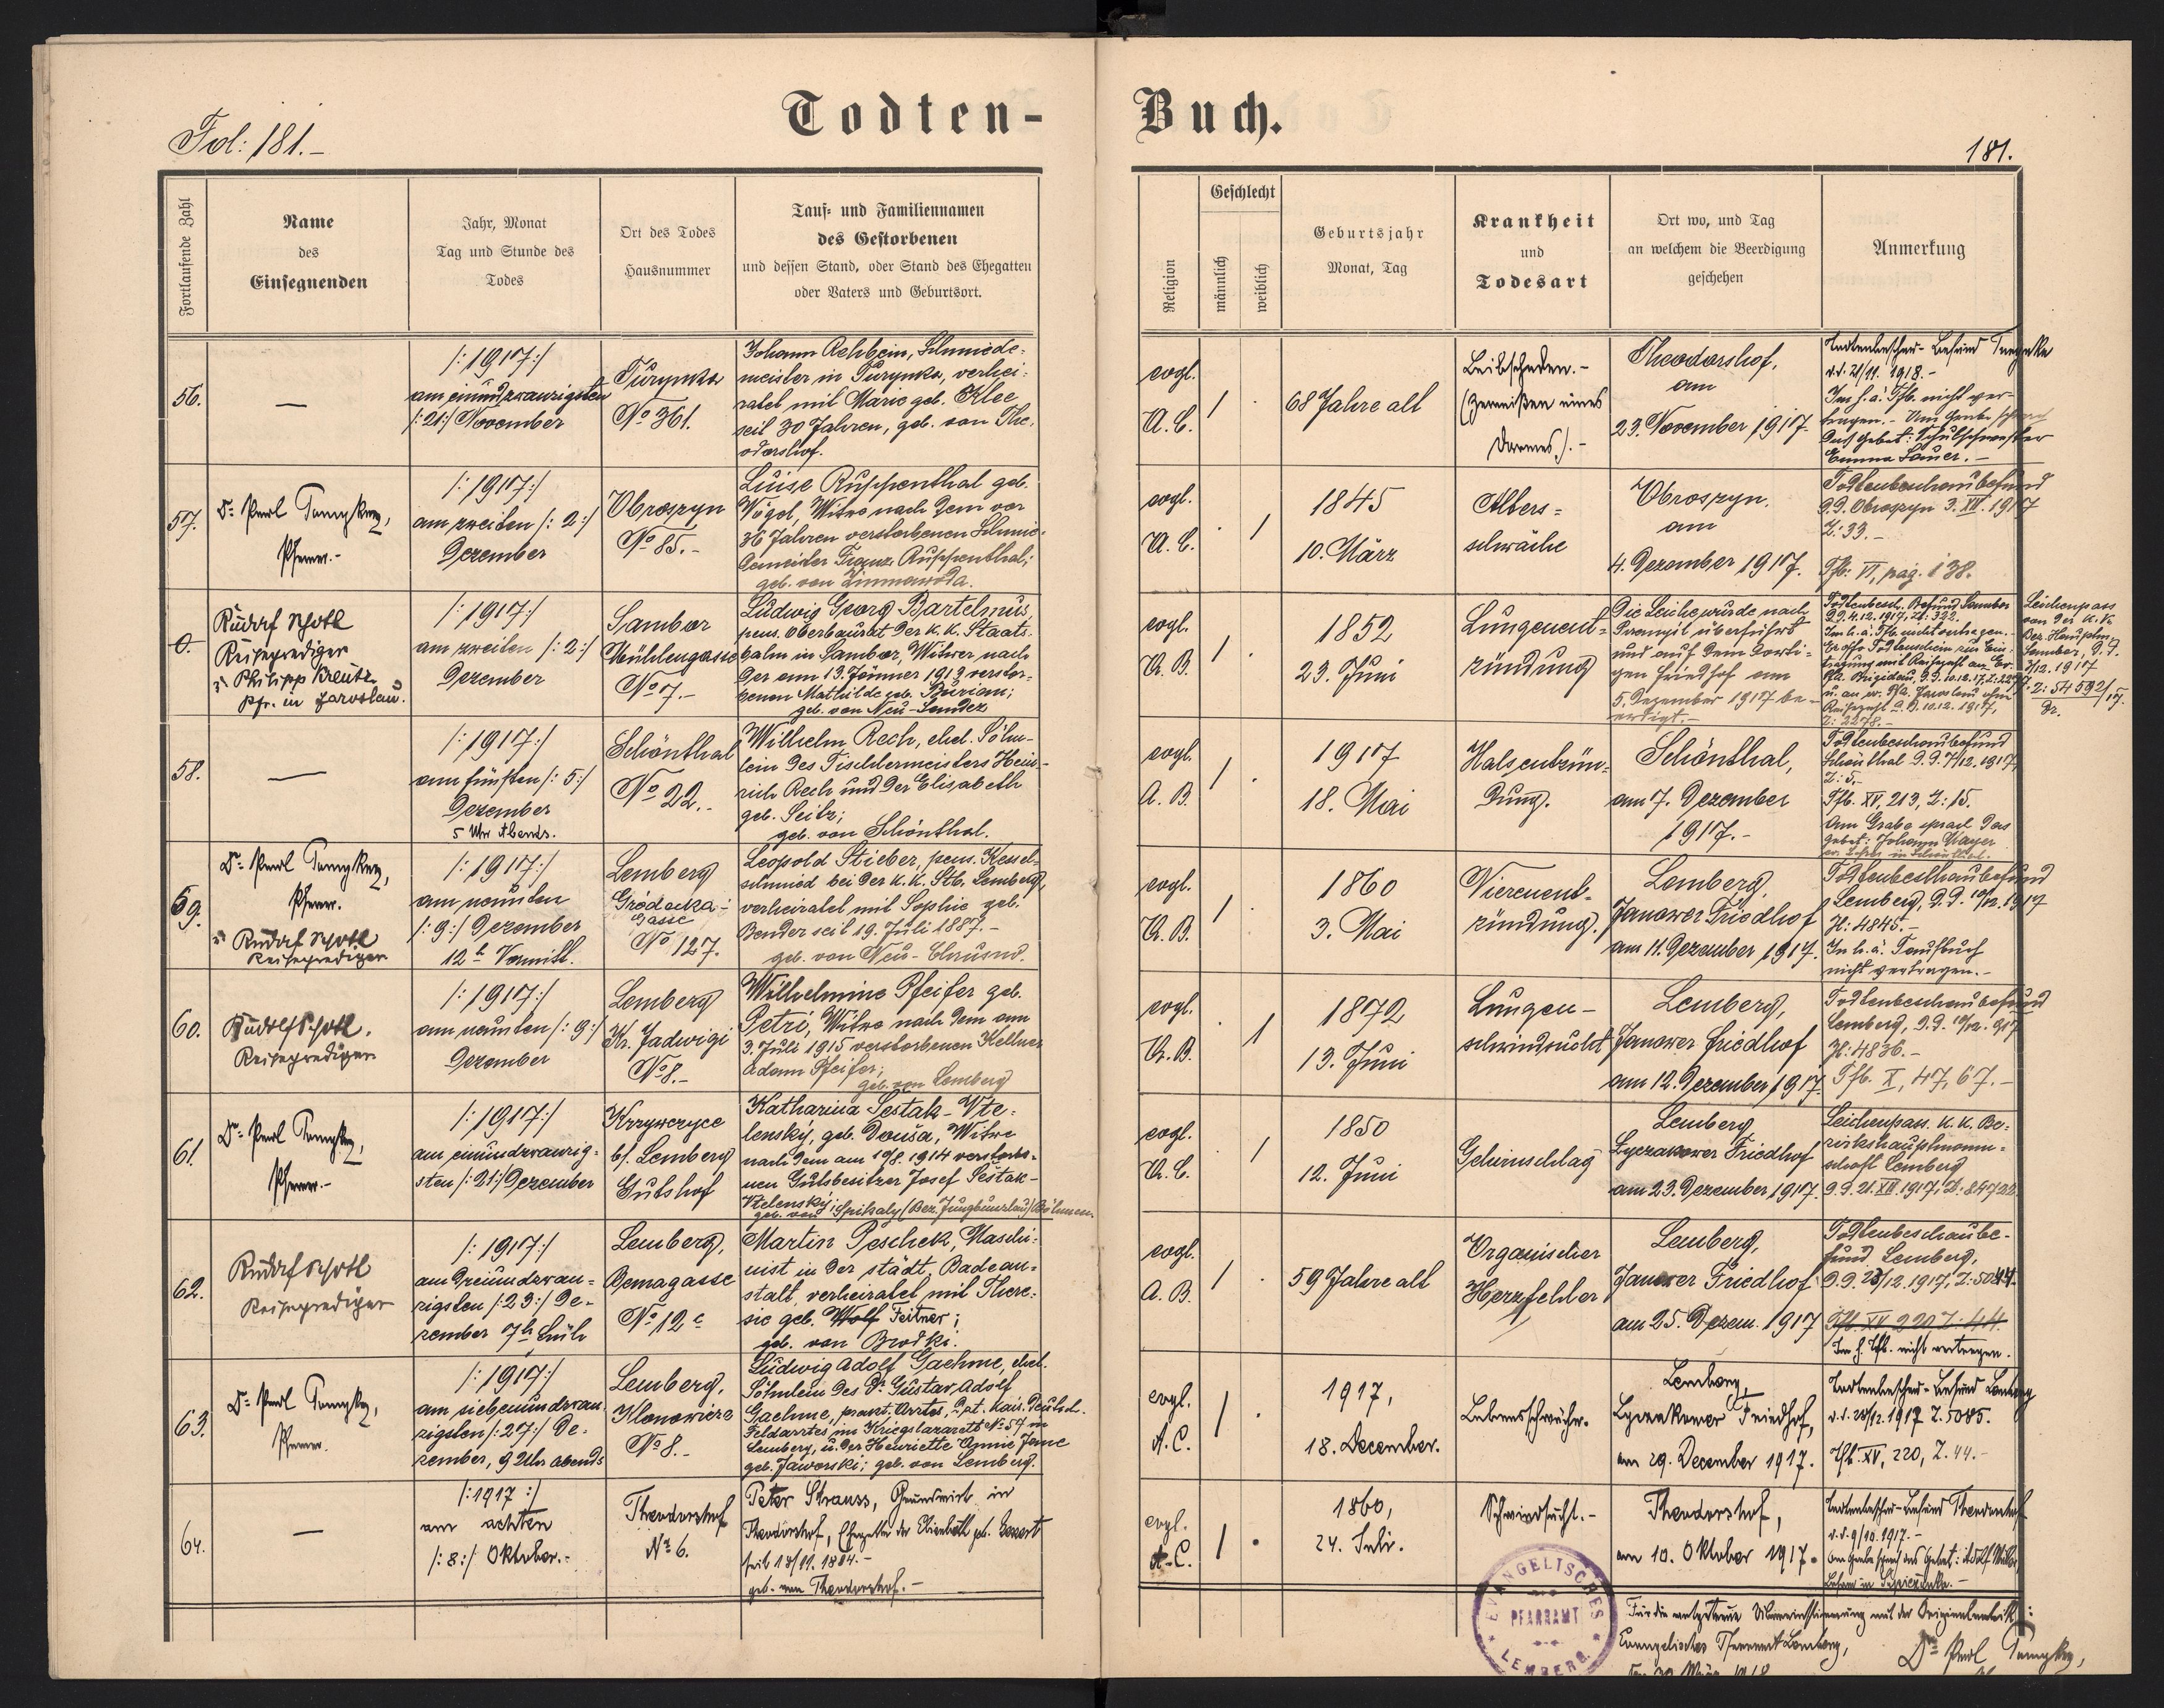 Todten-
Buch.
Fol: 181.-
181.
Fortlaufende Zahl
Name
des
Einsegnenden
Jahr, Monat
Tag und Stunde des
Todes
Ort des Todes
Hausnummer
Tauf- und Familiennamen
des Gestorbenen
und dessen Stand, oder Stand des Ehegatten
oder Vaters und Geburtsort.
Religion
Geschlecht
männlich
weiblich
Geburtsjahr
Monat, Tag
Krankheit
und
Todesart
Ort wo, und Tag
an welchem die Beerdigung
geschehen
Anmerkung
56.
—
/:1917:/
am einundzwanzigsten
/:21:/ November
Turynka
No 361.
Johann Rehbein, Schmiede-
meister in Turynka, verhei-
ratet mit Marie geb. Klee
seit 30 Jahren, geb. von The-
odorshof.
evgl.
A.C.
1 .
68 Jahre alt
Leibschaden.-
(Zerreißen eines
Darmes).-
Theodorshof,
am
23. November 1917.
Todtenbeschau-Befund Turynka
d.d. 21/11. 1918.-
Im h.ä. Tfb. nicht ver-
tragen.- Am Grabe sprach
das Gebet: Schulschwester
Emma Sauer.-
57.
Dr. Paul
Pfarrer.-
/:1917:/
am zweiten /:2:/
Dezember
Obroszyn
No 85.-
Luise Ruppenthal geb.
Vogel, Witwe nach dem vor
36 Jahren verstorbenen Schmie-
demeister Franz Ruppenthal;
geb. von Zimnawoda.
evgl.
A.C.
. 1
1845
10. März
Alters-
schwäche
Obroszyn.
am
4. Dezember 1917.
Todtenbeschaubefund
d.d. Obroszyn 3. XII. 1917
Z: 33.-
Tfb: VI, pag. 138.
0.
Rudolf Schotl
Reiseprediger
u. Philipp Kreutz
Pfr. in Jaroslau.
/:1917:/
am zweiten /:2:/
Dezember
Sambor
Mühlengasse
No 7.-
Ludwig Georg Bartelmus,
pens. Oberbaurat der K.K. Staats-
bahn in Sambor, Witwer nach
der am 13. Jänner 1913 verstor-
benen Mathilde geb. Burian;
geb. von Neu-Sandez
evgl.
A.B.
1 .
1852
23. Juni
Lungenent-
zündung
Die Leiche wurde nach
überführt
und auf dem dorti-
gen Friedhof am
5. Dezember 1917 be-
erdigt.-
Todtenbesch. Befund Sambor
d.d. 4.12.1917, Zl: 322.
Im h.ä. Tfb. nicht vertragen.-
Leichenpass
von der K.K.
Bez. Hauptm.
Sambor, d.d.
3/12. 1917
Z: 54592/17.
58.
—
/:1917:/
am fünften /:5:/
Dezember
5 Uhr Abends.
Schönthal
No 22.-
Wilhelm Rech, ehel. Söhn-
lein des Tischlermeisters Hein-
rich Rech und der Elisabeth
geb. Seitz;
geb. von Schönthal.
evgl.
A.B.
1 .
1917
18. Mai
Halsentzün-
dung.
Schönthal,
am 7. Dezember
1917.-
Todtenbeschaubefund
Schönthal d.d. 7/12. 1917,
Z: 5.
Tfb. XV, 213, Z: 15.
Am Grabe sprach das
Gebet: Johann Mayer
ev. Lehrer in Schönthal.
59.
Dr. Paul
Pfarrer.
u. Rudolf Schotl
Reiseprediger
/:1917:/
am neunten
/:9:/ Dezember
12 h Vormitt.
Lemberg
Gródecka-
gasse
No 127.
Leopold Stieber, pens. Kessel-
schmied bei der K.K. Stb. Lemberg,
verheiratet mit Sophie geb.
Bender seit 19. Juli 1887.-
geb. von Neu-
evgl.
A.B.
1 .
1860
3. Mai
Nierenent-
zündung.
Lemberg.
Janower Friedhof
am 11. Dezember 1917.
Todtenbeschaubefund
Lemberg, d.d. 10/12. 1917
Zl: 4845.-
In h.ä. Taufbuch
nicht vertragen.-
60.
Rudolf Schotl.
Reiseprediger
/:1917:/
am neunten /:9:/
Dezember
Lemberg
Kr. Jadwigi
No 8.-
Wilhelmine Pfeifer geb.
Petri, Witwe nach dem am
3. Juli 1915 verstorbenen Kellner
Adam Pfeifer;
geb. von Lemberg
evgl.
A.B.
. 1
1872
13. Juni
Lungen-
schwindsucht
Lemberg,
Janower Friedhof
am 12. Dezember 1917.
Todtenbeschaubefund
Lemberg, d.d. 10/12. 917
Zl: 4836.-
Tfb. X, 47, 67.-
61.
Dr. Paul
Pfarrer.-
/:1917:/
am einundzwanzig-
sten /:21:/ Dezember
Krzywczyce
b/. Lemberg
Gutshof
Katharina Šestak-Vte-
lensky, geb. Douša, Witwe
nach dem am 10/8. 1914 verstorbe-
nen Gutsbesitzer Josef Šestak-
Vtelensky; geb. von (Bez. Jungbunzlau) Böhmen.
evgl.
A.C.
. 1
1850
12. Juni
Gehirnschlag
Lemberg
Lyczakower Friedhof
am 23. Dezember 1917.
Leichenpass. K.K. Be-
zirkshauptmann-
schaft Lemberg
d.d. 21. XII. 1917, Z: 84722
62.
Rudolf Schotl
Reiseprediger
/:1917:/
am dreiundzwan-
zigsten /:23:/ De-
zember 7h Früh
Lemberg,
Bemagasse
No 12 c
Martin Peschek, Maschi-
nist in der städt. Badean-
stalt, verheiratet mit There-
sie geb. Wolf Feitner;
geb. von Brodki.
evgl.
A.B.
1 .
59 Jahre alt
Organischer
Herzfehler
Lemberg,
Janower Friedhof
am 25. Dezem. 1917
Todtenbeschaube-
fund Lemberg,
d.d. 23/12. 1917, Z: 5044.
Tfb. XV 220 Z: 44.
Im h. Tfb. nicht vertragen.
63.
Dr. Paul
Pfarrer.
/:1917:/
am siebenundzwan-
zigsten /:27:/ De-
zember, 9 Uhr abends
Lemberg,
Klonowicza
No 8.-
Ludwig Adolf Gaehme, ehel.
Söhnlein des Dr. Gustav Adolf
Gaehme, prakt. Arztes, Kais. Deutsch.
Feldarztes im Kriegslazarett No 54 in
Lemberg, u. der Henriette Annie
geb. Jaworski; geb. von Lemberg.
evgl.
A.C.
1 .
1917,
18. December.
Lebensschwäche.
Lemberg,
Lyczakower Friedhof,
am 29. December 1917.
Todtenbeschau-Befund Lemberg
d.d. 28/12. 1917 Z. 5085.
Tfb. XV, 220, Z. 44.-
64.
—
/:1917:/
am achten
/:8:/ Oktober.-
Theodorshof
No 6.
Peter Strauss, Grundwirt in
Theodorshof, Ehegatte der Elisabeth geb.
seit 18/11. 1884.-
geb. von Theodorshof.-
evgl.
A.C.
1 .
1860,
24. Juli.
Schwindsucht.-
Theodorshof,
am 10. Oktober 1917.
Todtenbeschau-Befund Theodorshof
d.d. 9/10. 1917.-
Am Grabe sprach das Gebet: Adolf
EVANGELISCHES
PFARRAMT
LEMBERG.
Für die wortgetreue Übereinstimmung mit der Originalmatrik:
Evangelisches Pfarramt Lemberg,
Dr. Paul